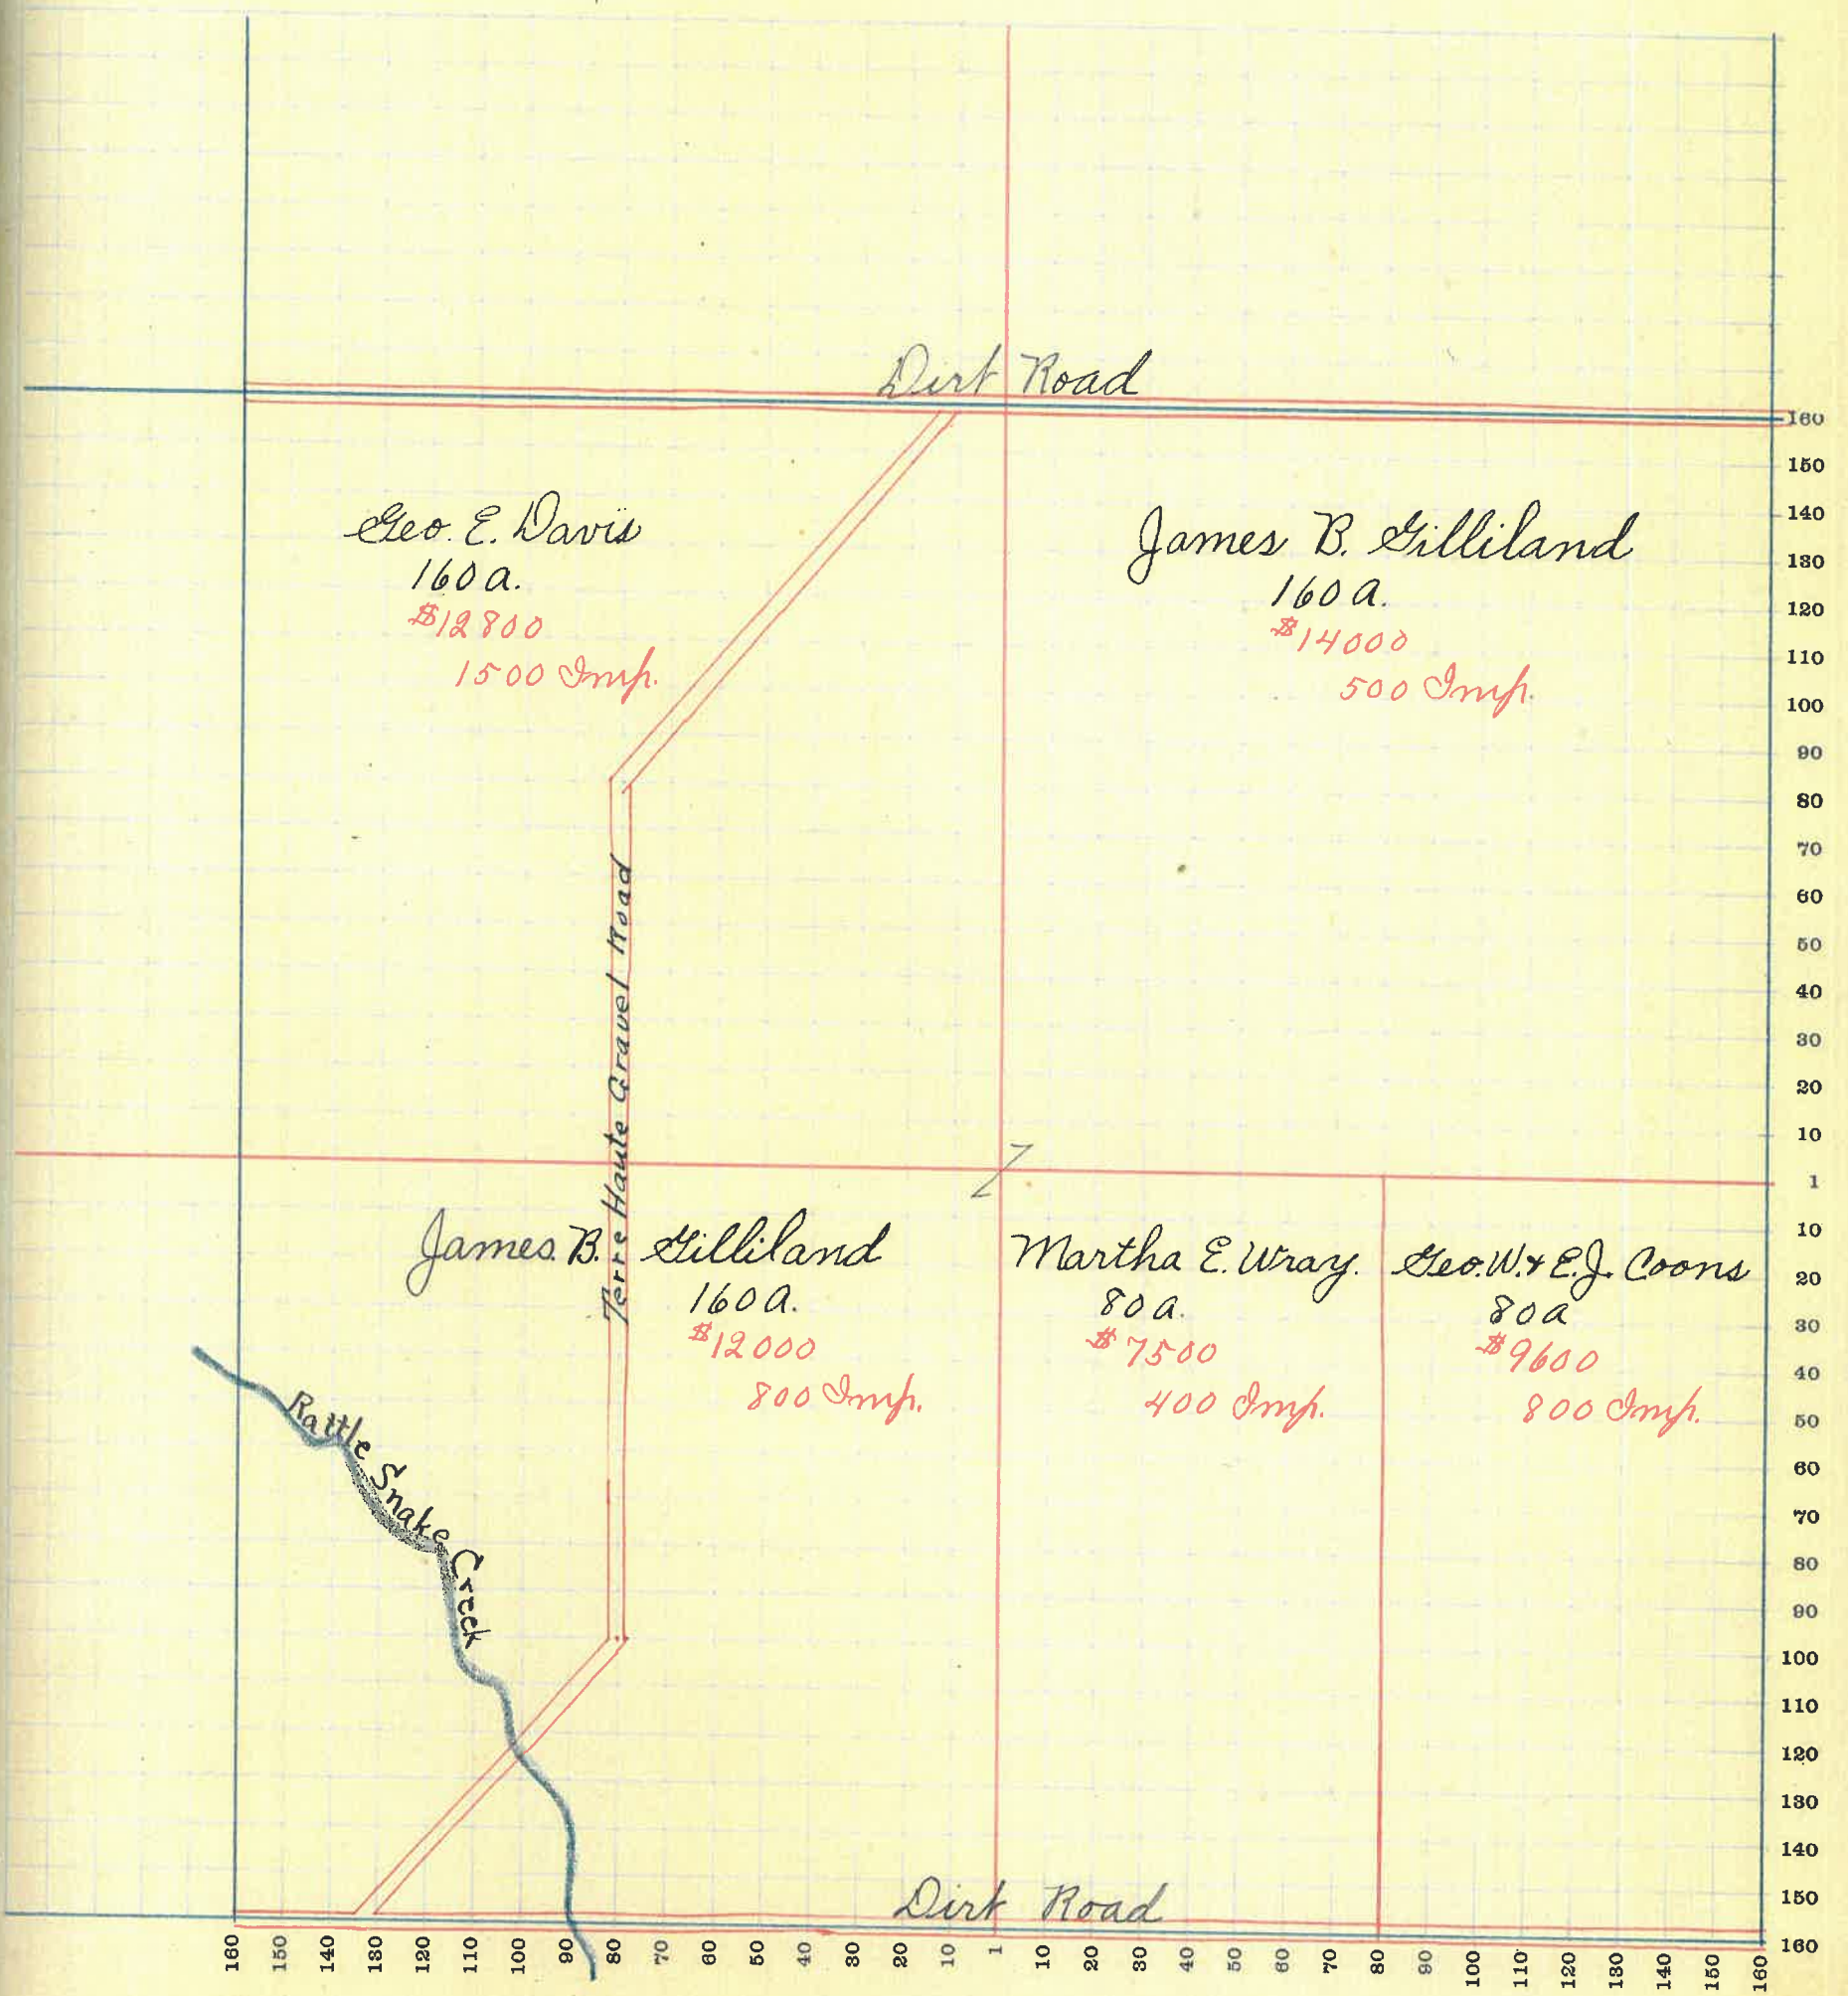 Dirt Road
Geo. E. Davis
160 a.
$12800
1500 Imp.
James B. Gilliland
160 a.
$14000
500 Imp.
Terre Haute Gravel Road
7
James B. Gilliland
160 a.
$12000
800 Imp.
Martha E. Wray.
80 a.
$7500
400 Imp.
Geo. W. & E. J. Coons
80 a
$9600
800 Imp.
Rattle Snake Creek
Dirt Road
160
150
140
130
120
110
100
90
80
70
60
50
40
30
20
10
1
10
20
30
40
50
60
70
80
90
100
110
120
130
140
150
160
160 150 140 130 120 110 100 90 80 70 60 50 40 30 20 10 1 10 20 30 40 50 60 70 80 90 100 110 120 130 140 150 160